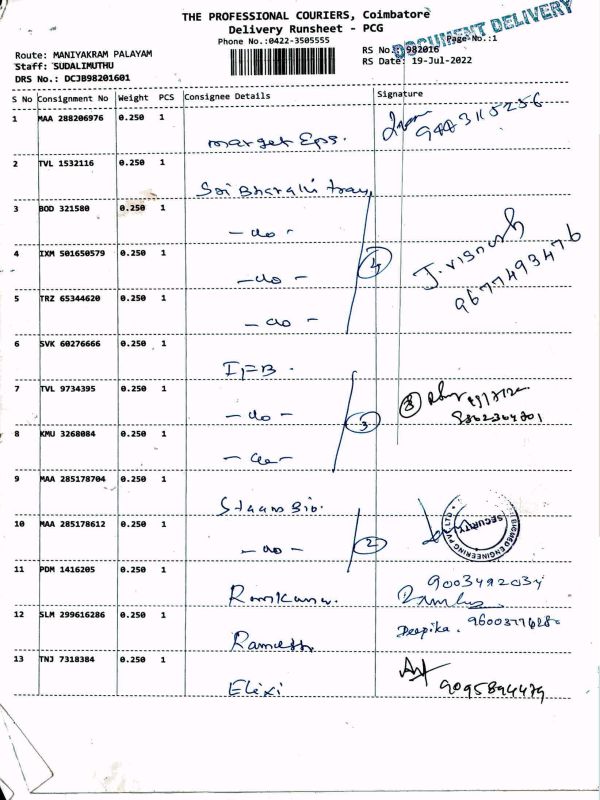 THE PROFESSIONAL COURIERS, Coimbatore
Delivery Runsheet - PCG
DOCUMENT DELIVERY
Phone No.:0422-3505555
Page No.:1
Route: MANIYAKRAM PALAYAM
RS No.: 982016
Staff: SUDALIMUTHU
RS Date: 19-Jul-2022
DRS No.: DCJB98201601
S No Consignment No Weight PCS Consignee Details Signature
1 MAA 288206976 0.250 1
9443115256
2 TVL 1532116 0.250 1
Sri Bharathi tray
3 BOD 321580 0.250 1
- do -
4 IXM 501650579 0.250 1
- do -
4
J. Vishnush
9677493476
5 TRZ 65344620 0.250 1
- do -
6 SVK 60276666 0.250 1
IFB.
7 TVL 9734395 0.250 1
- do -
3
3
8 KMU 3268084 0.250 1
- do -
9 MAA 285178704 0.250 1
10 MAA 285178612 0.250 1
- do -
2
SECURITY
ENGINEERING PVT LTD
11 PDM 1416205 0.250 1
Ramkumar.
9003492034
12 SLM 299616286 0.250 1
Ramesh
Deepika.
13 TNJ 7318384 0.250 1
Elixi
9095894479